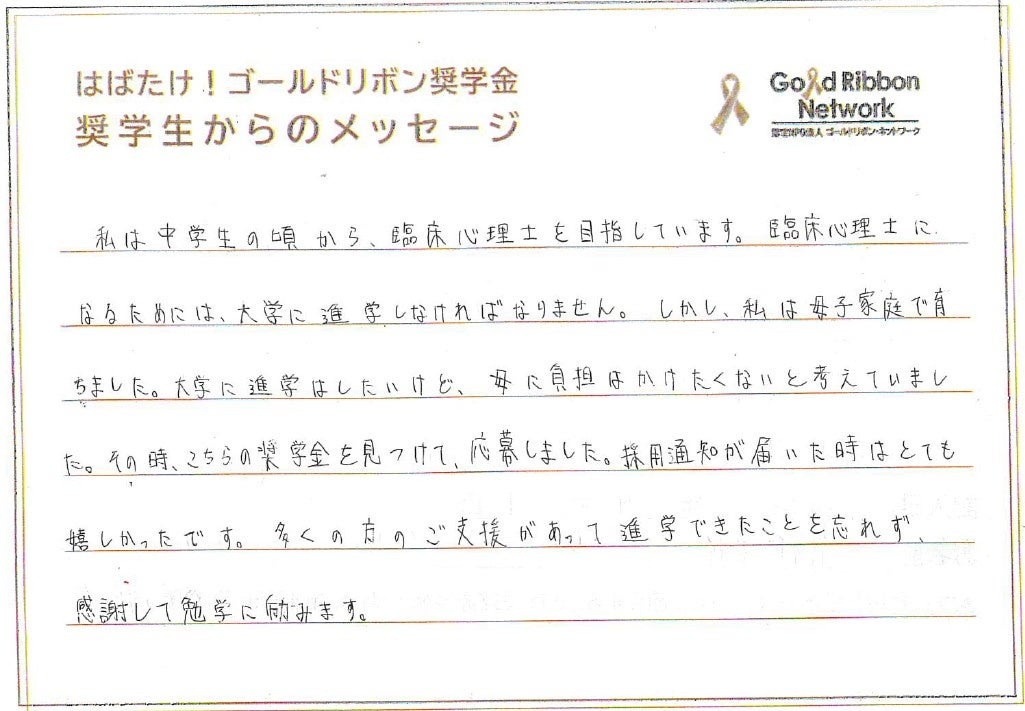 はばたけ！ゴールドリボン奨学金
奨学生からのメッセージ
Gold Ribbon
Network
認定NPO法人 ゴールドリボン・ネットワーク
私は中学生の頃から、臨床心理士を目指しています。臨床心理士に
なるためには、大学に進学しなければなりません。しかし、私は母子家庭で育
ちました。大学に進学はしたいけど、母に負担はかけたくないと考えていまし
た。その時、こちらの奨学金を見つけて、応募しました。採用通知が届いた時はとても
嬉しかったです。多くの方のご支援があって進学できたことを忘れず、
感謝して勉学に励みます。